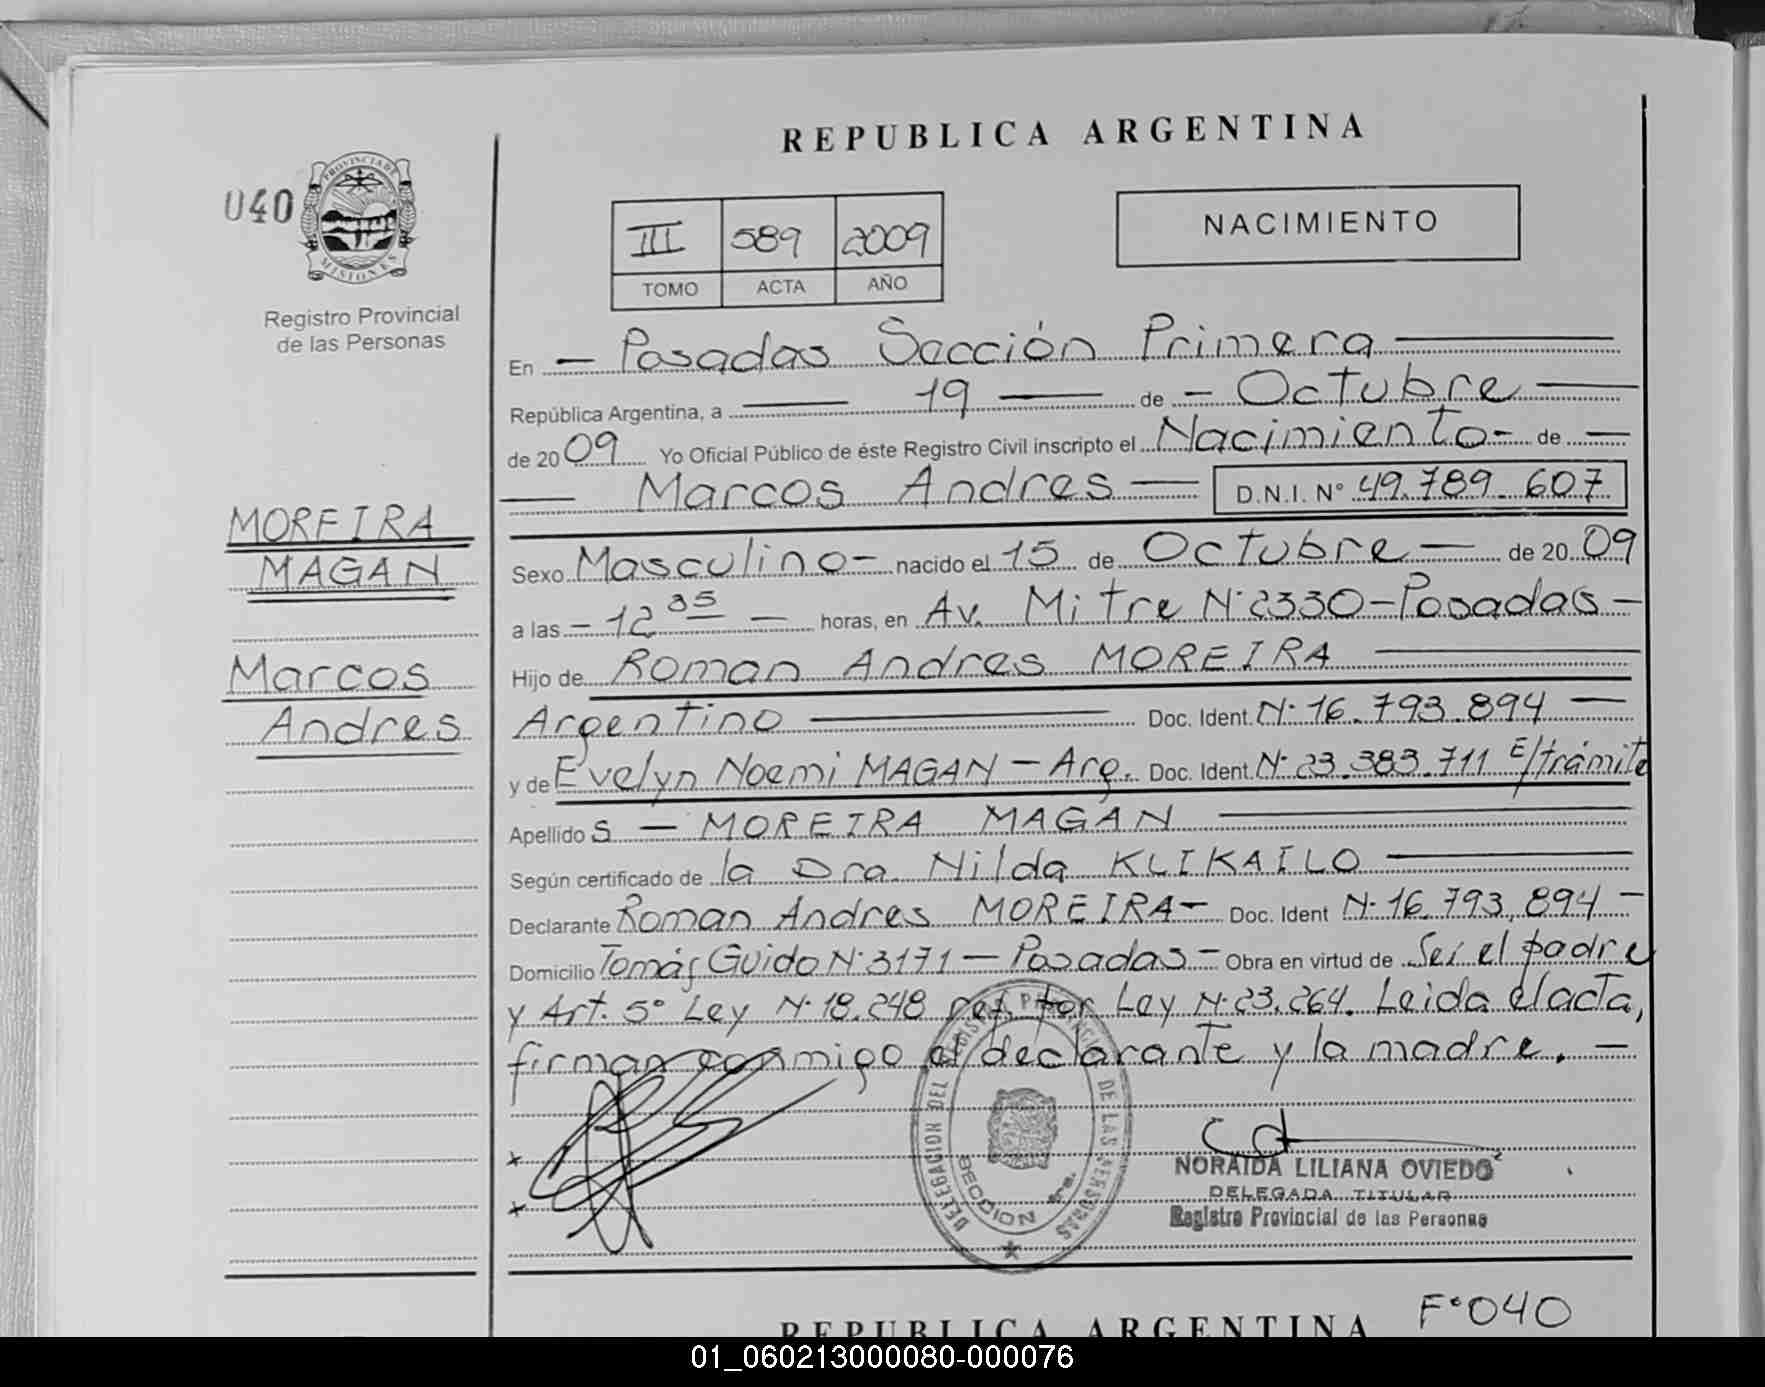 REPUBLICA ARGENTINA
040
PROVINCIA DE
MISIONES
Registro Provincial
de las Personas
III 589 2009
TOMO ACTA AÑO
NACIMIENTO
En — Posadas Sección Primera
República Argentina, a 19 de - Octubre
de 2009 Yo Oficial Público de éste Registro Civil inscripto el Nacimiento - de —
Marcos Andres — D.N.I. N° 49.789.607
MOREIRA
MAGAN
Marcos
Andres
Sexo Masculino - nacido el 15 de Octubre — de 2009
a las - 12 35 — horas, en Av. Mitre N° 2330 - Posadas -
Hijo de Roman Andres MOREIRA
Argentino — Doc. Ident. N° 16.793.894 —
y de Evelyn Noemi MAGAN - Arg. Doc. Ident. N° 23.383.711 E/trámite
Apellido s — MOREIRA MAGAN
Según certificado de la Dra. Nilda KLIKAILO
Declarante Roman Andres MOREIRA - Doc. Ident N° 16.793.894 -
Domicilio Tomás Guido N° 3171 — Posadas - Obra en virtud de Ser el padre
y Art. 5° Ley N° 18.248 por Ley N° 23.264. Leida el acta,
firman conmigo el declarante y la madre. —
DELEGACION DEL REGISTRO PROVINCIAL DE LAS PERSONAS
SECCION 1ra.
x
x
NORAIDA LILIANA OVIEDO
DELEGADA TITULAR
Registro Provincial de las Personas
F° 040
REPUBLICA ARGENTINA
01_060213000080-000076